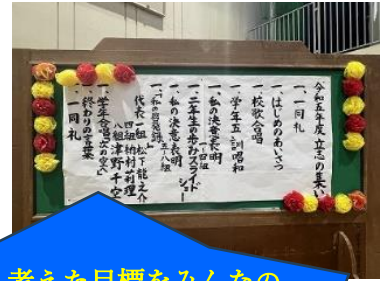 令和五年度 立志の集い
一、一同礼
一、はじめのあいさつ
一、校歌合唱
一、学年五訓唱和
一、私の決意表明
一〜四組
一、二年生の歩みスライドショー
一、私の決意表明
五〜八組
一、「私の回覧録」
代表 一組 松下龍之介
四組 納村莉理
八組 津野千空
一、学年合唱「次の空へ」
一、終わりの言葉
一、一同礼
考えた目標をみんなの